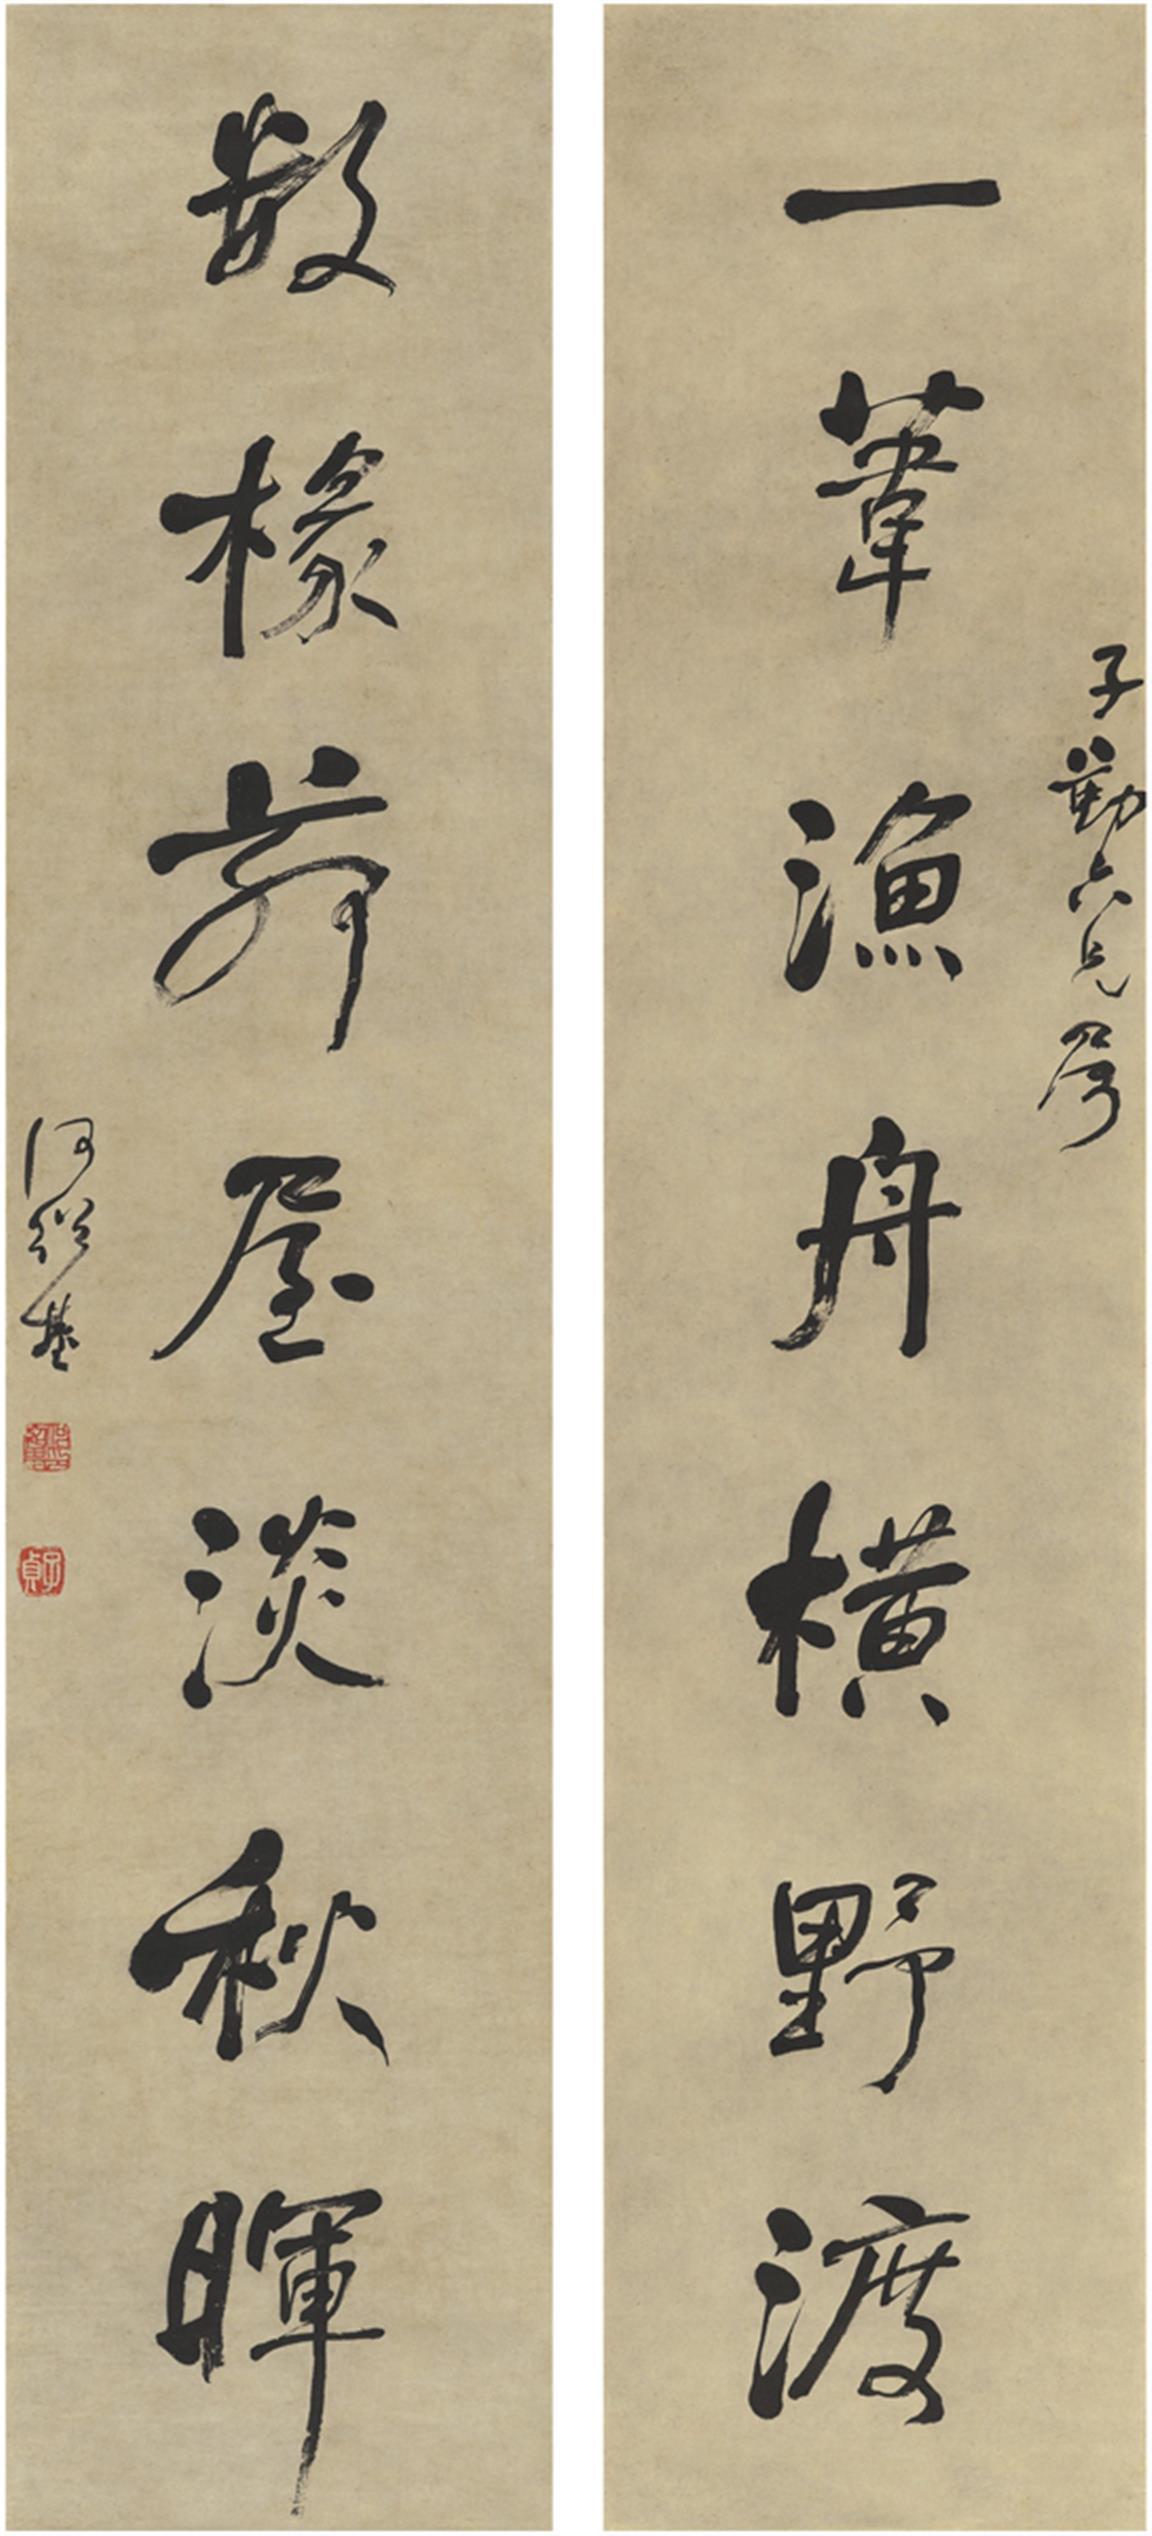 子勤六兄屬
一葦漁舟橫野渡
數椽茆屋淡秋暉
何紹基
子貞